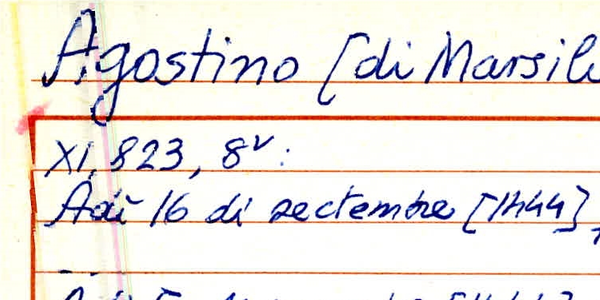 Agostino [di Marsili
XI, 823, 8v:
Adì 16 di sectembre [1444],